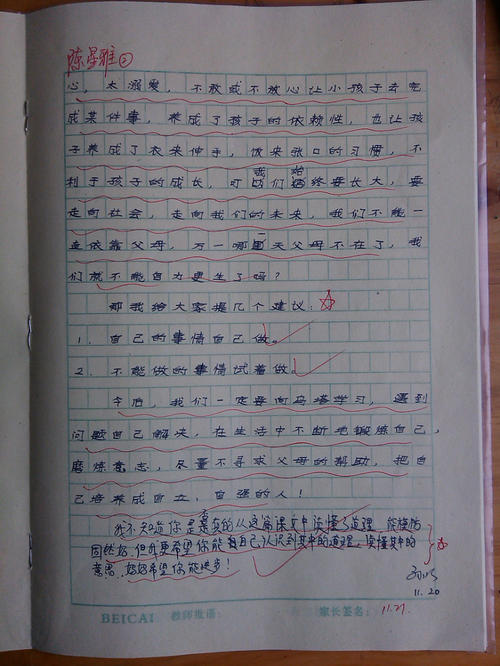 陈星雅②
心，太溺爱，不放或不放心让小孩子去完
成某件事，养成了孩子的依赖性，也让孩
子养成了衣来伸手，饭来张口的习惯，不
利于孩子的成长，可我们始终要长大，要
走向社会，走向我们的未来，我们不能一
直依靠父母，万一哪一天父母不在了，我
们就不能自力更生了吗？
那我给大家提几个建议：
1．自己的事情自己做。
2．不能做的事情试着做。
今后，我们一定要向乌塔学习，遇到
问题自己解决，在生活中不断地锻炼自己，
磨炼意志，尽量不寻求父母的帮助，把自
己培养成自立，自强的人！
我不知道你是否真的从这篇课文中读懂了道理
固然好，但我更希望你能自己认识到其中的道理，读懂其中的
意思，妈妈希望你能进步！
11.20
BEICAI 教师批语： 家长签名：
11.21